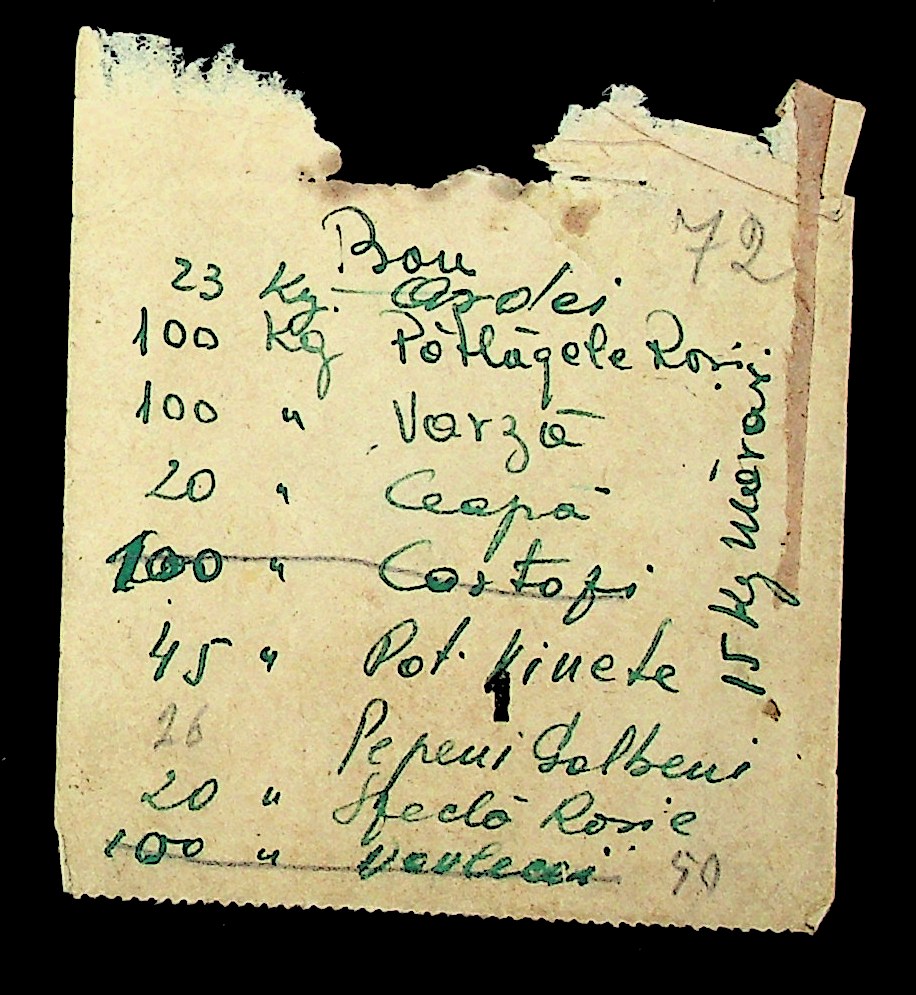 72
Bon
23 Kg. Ardei
100 Kg Pŏtlăgele Rosii
100 " Varză
20 " Ceapă
100 " Cartofi
45 " Pat. Vinete
26 Pepeni Galbeni
20 " Sfeclă Rosie
100 "
50
15 Kg Mărar